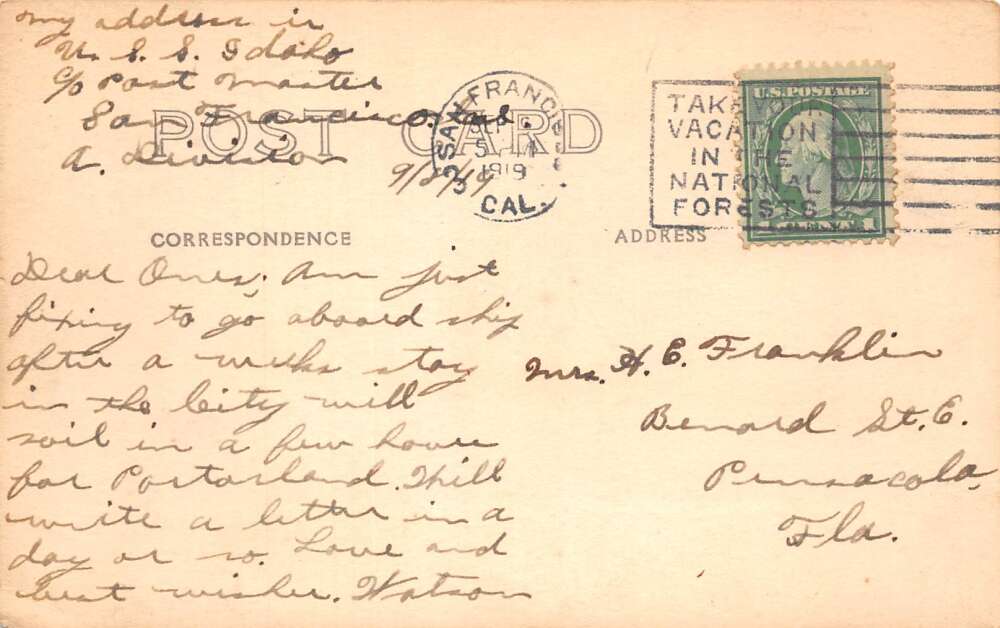 my address is
U.S.S. Idaho
c/o Post Master
San Francisco. Cal.
A. Division
9/5/19
POST CARD
SAN FRANCISCO
SEP
5
1919
CAL.
TAKE YOUR
VACATION
IN THE
NATIONAL
FORESTS
U.S. POSTAGE
1 CENT 1
CORRESPONDENCE
ADDRESS
Dear Ones, Am just
fixing to go aboard ship
after a weeks stay
in the City will
sail in a few hours
for Portorland. Will
write a letter in a
day or so. Love and
best wishes. Watson
Mrs. H. E. Franklin
Benard St. E.
Pensacola,
Fla.